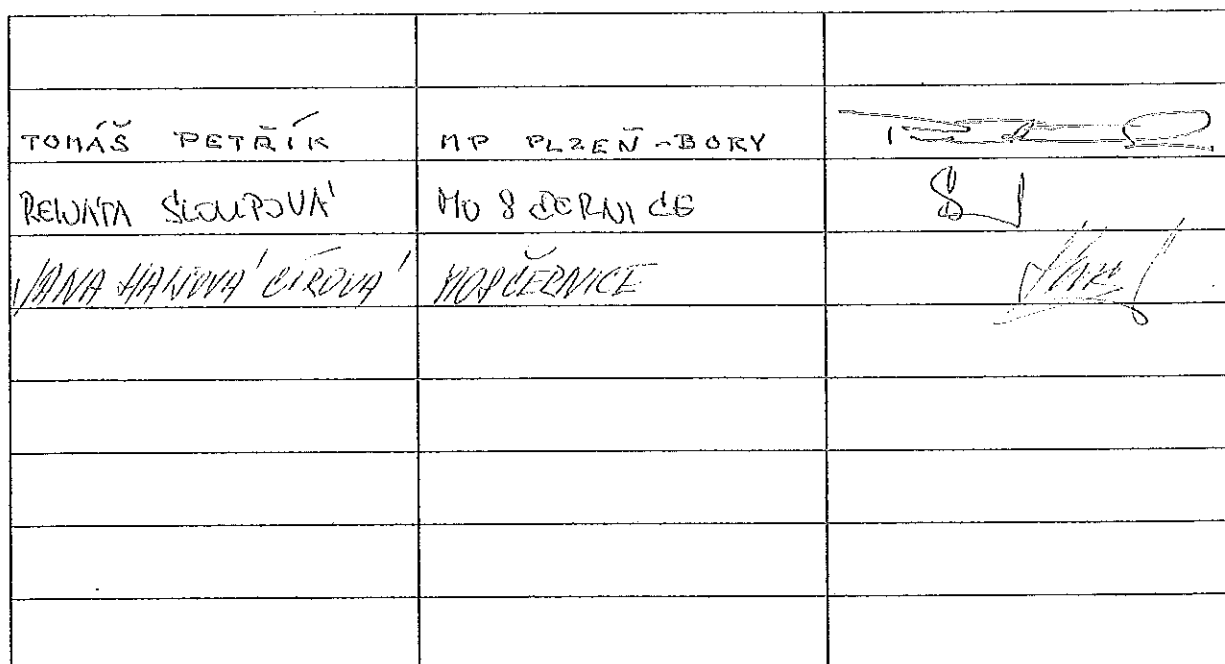 TOMÁŠ PETŘÍK MP PLZEŇ-BORY
RENATA SLOUPOVÁ MO 8 ČERNICE
JANA HAJNOVÁ CÍROVÁ MO8 ČERNICE